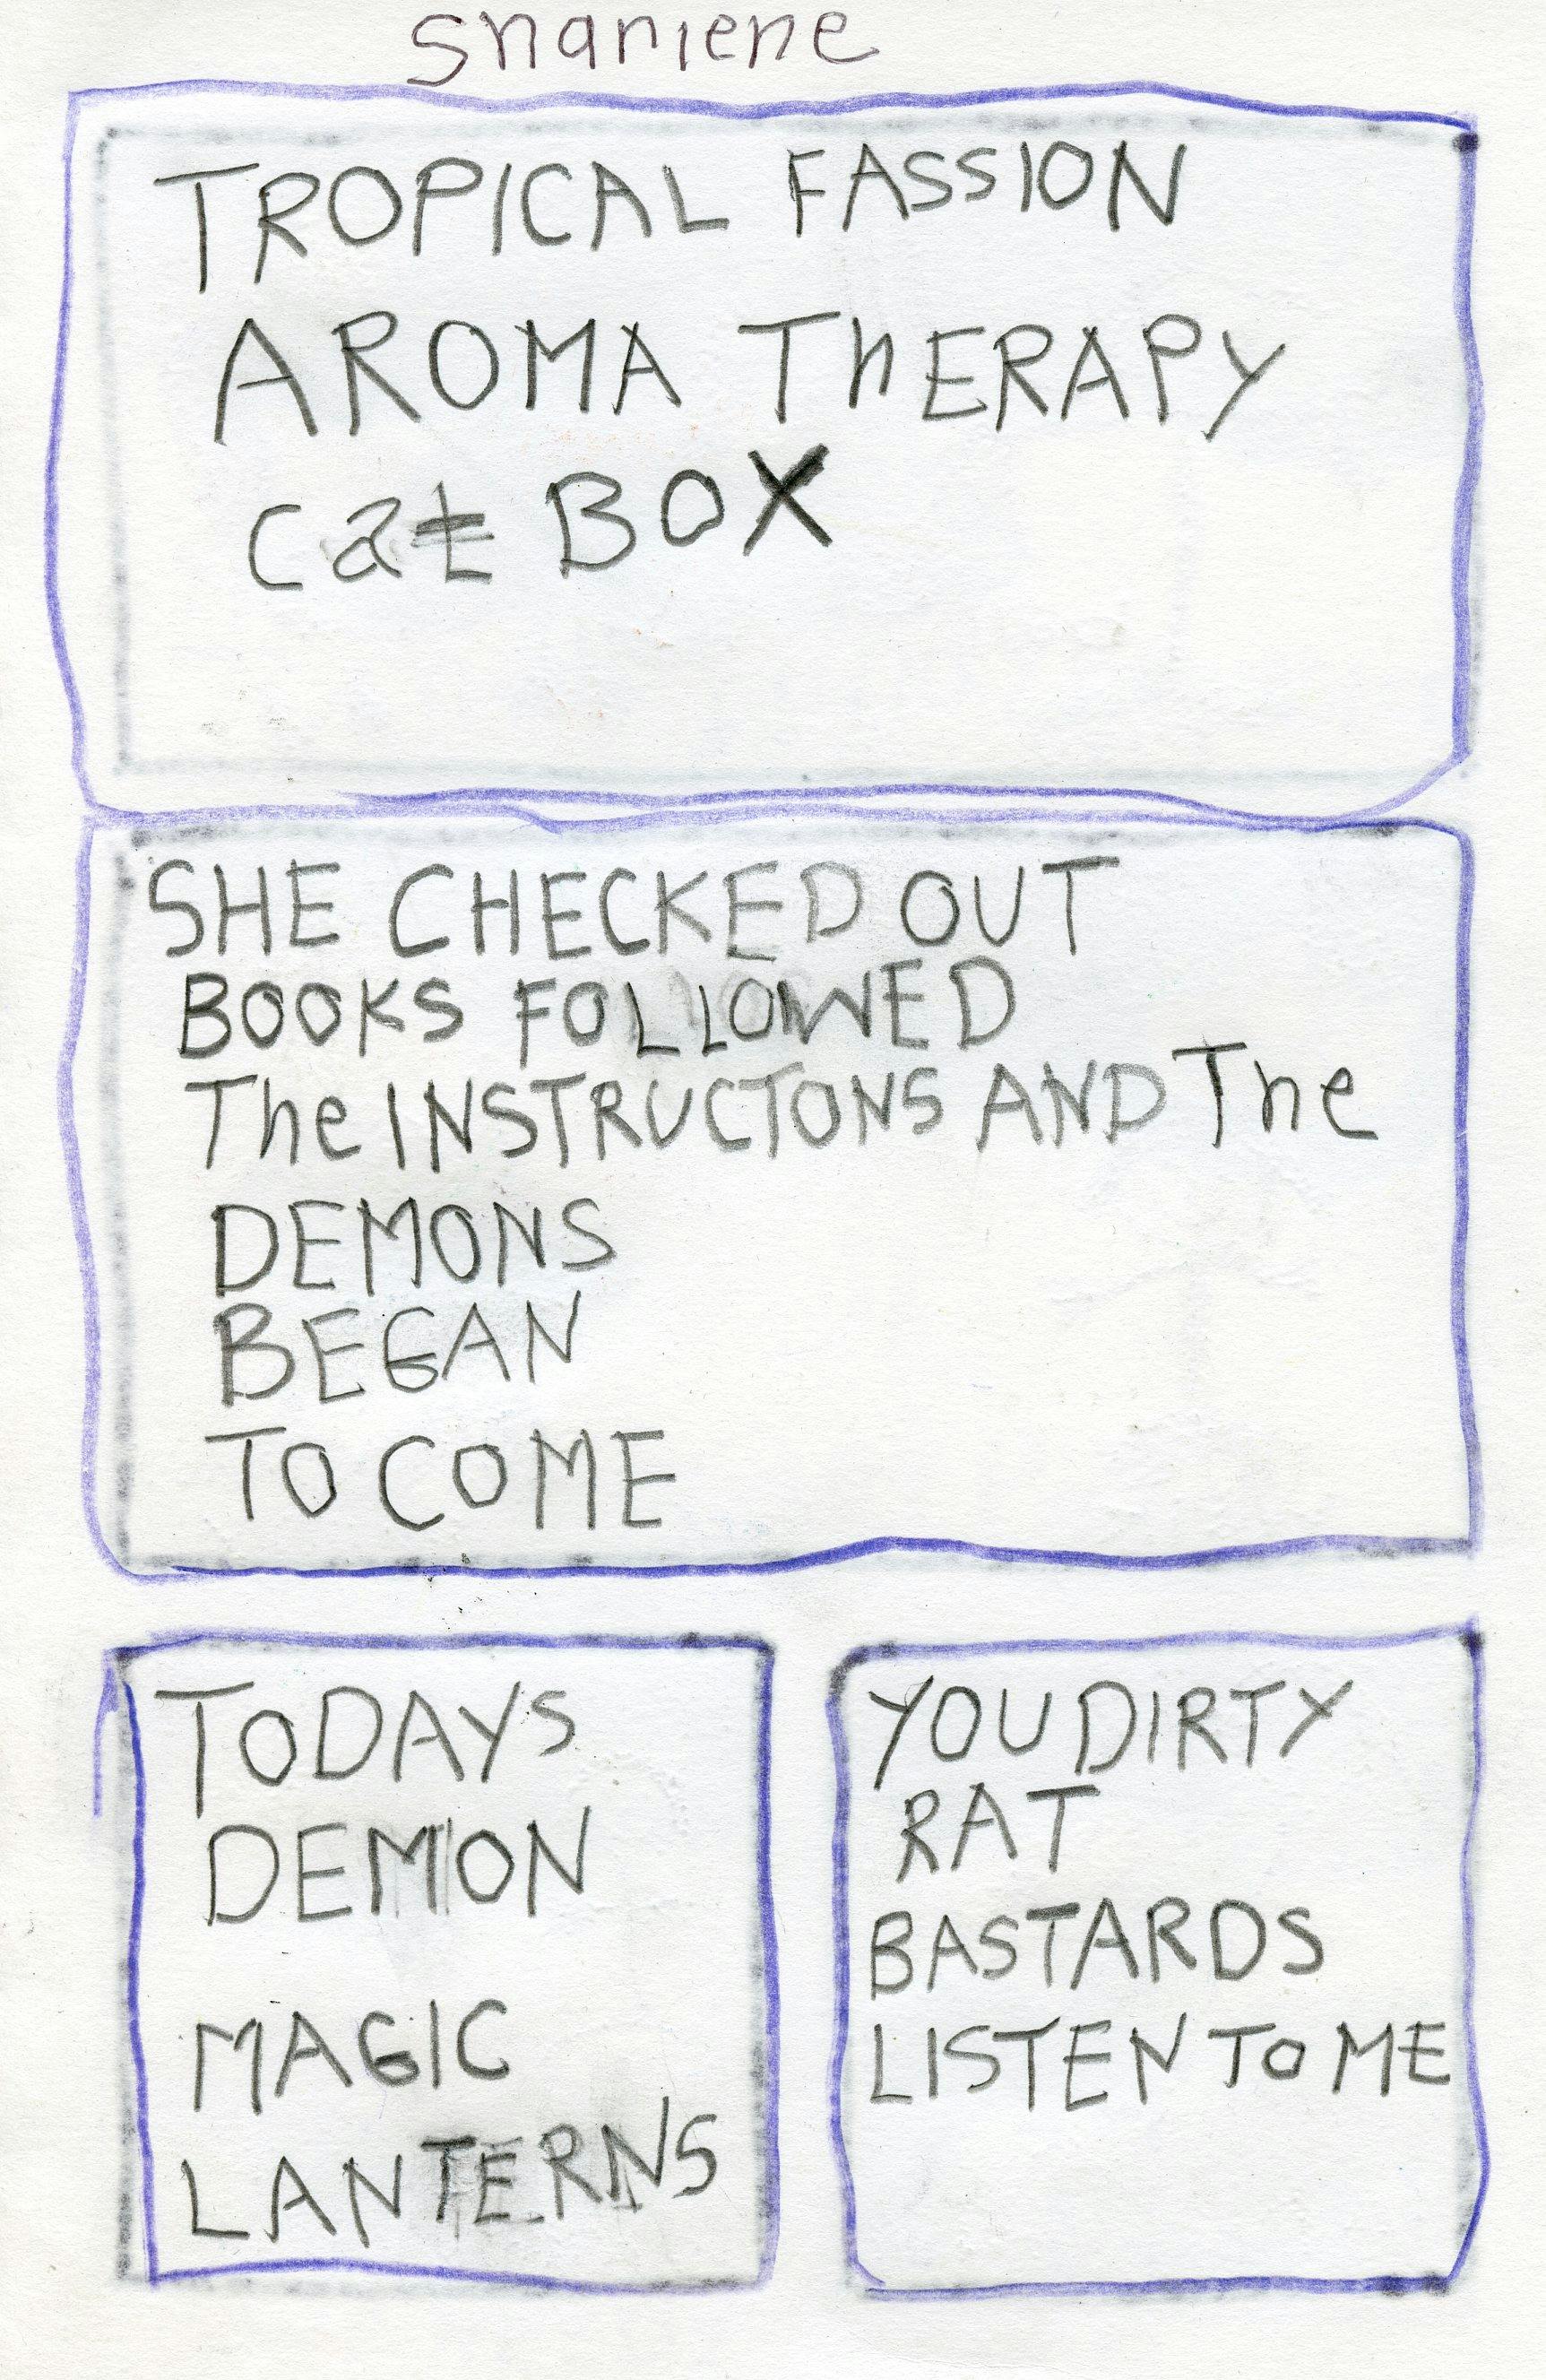 snariene
TROPICAL FASSION
AROMA ThERAPY
cat BOX
SHE CHECKED OUT
BOOKS FOLLOWED
The INSTRUCTONS AND The
DEMONS
BEGAN
TO COME
TODAYS
DEMON
MAGIC
LANTERNS
YOU DIRTY
RAT
BASTARDS
LISTEN TO ME